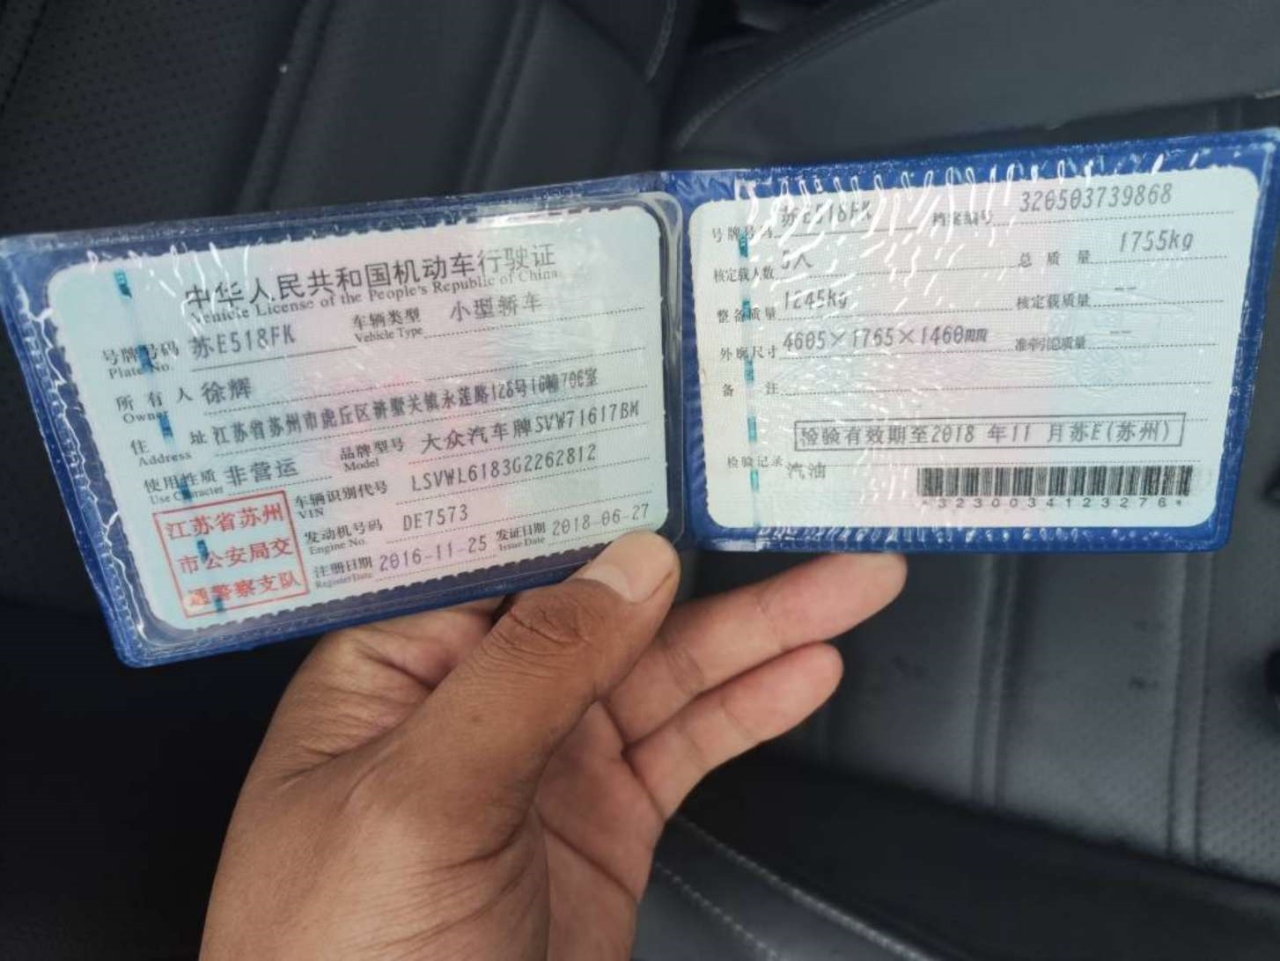 中华人民共和国机动车行驶证
Vehicle License of the People's Republic of China
号牌号码 苏E518FK 车辆类型 小型轿车
Plate No. Vehicle Type
所有人 徐辉
Owner
住址 江苏省苏州市虎丘区浒墅关镇永莲路128号16幢706室
Address
使用性质 非营运 品牌型号 大众汽车牌SVW71617BM
Use Character Model
车辆识别代号 LSVWL6183G2262812
VIN
发动机号码 DE7573
Engine No.
注册日期 2016-11-25 发证日期 2018-06-27
Register Date Issue Date
江苏省苏州
市公安局交
通警察支队
号牌号码 苏E518FK 档案编号 320503739868
核定载人数 5人 总质量 1755kg
整备质量 1245kg 核定载质量 --
外廓尺寸 4605×1765×1460mm 准牵引总质量 --
备注
检验有效期至2018 年11 月苏E(苏州)
检验记录 汽油
*3230034123276*